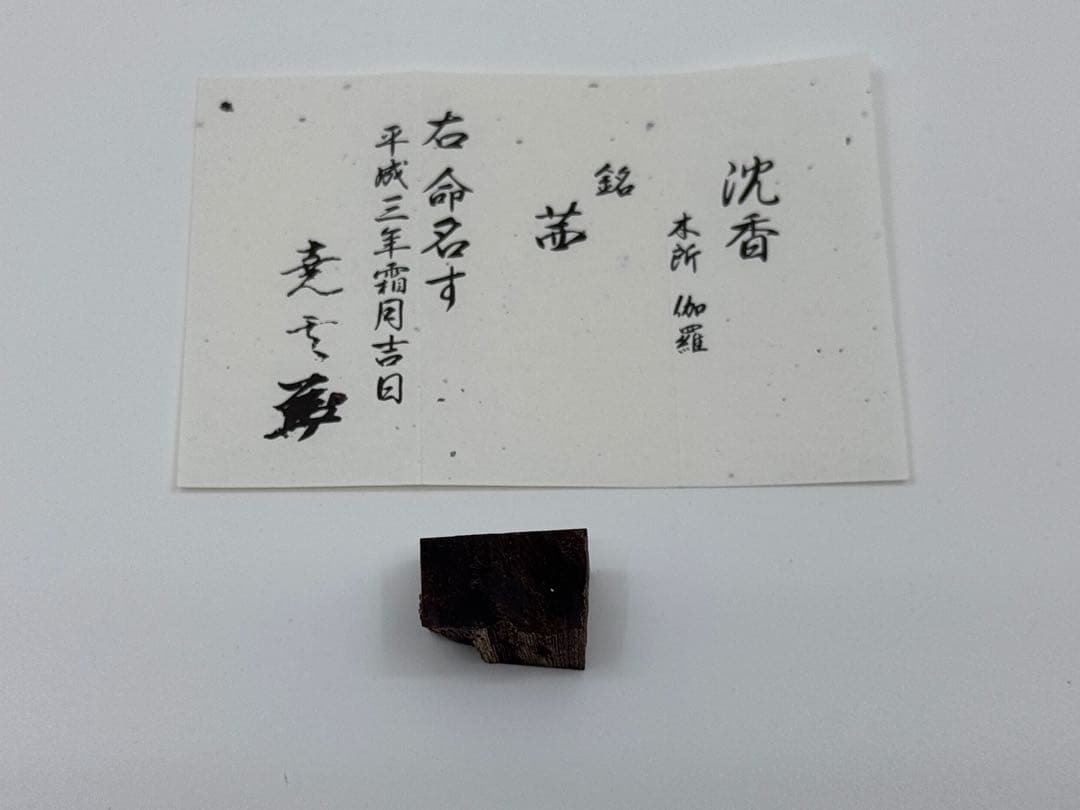 沈香
木所 伽羅
銘
茜
右命名す
平成三年霜月吉日
尭雲